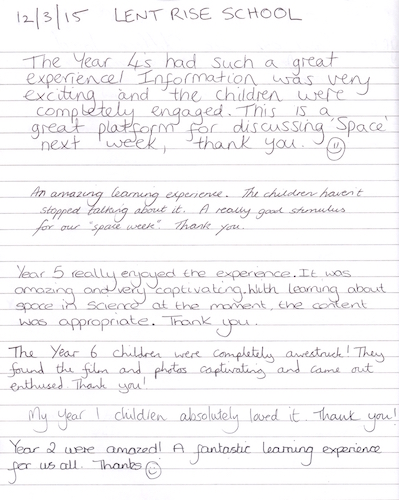 12/3/15 LENT RISE SCHOOL
The Year 4s had such a great
experience! Information was very
exciting and the children were
completely engaged. This is a
great platform for discussing 'Space'
next week, thank you.
An amazing learning experience. The children haven't
stopped talking about it. A really good stimulus
for our "space week". Thank you.
Year 5 really enjoyed the experence. It was
amazing and very captivating. With learning about
space in Science at the moment, the content
was appropriate. Thank you.
The Year 6 children were completely awestruck! They
found the film and photos captivating and came out
enthused. Thank you!
My Year 1 children absolutely loved it. Thank you!
Year 2 were amazed! A fantastic learning experience
for us all. Thanks